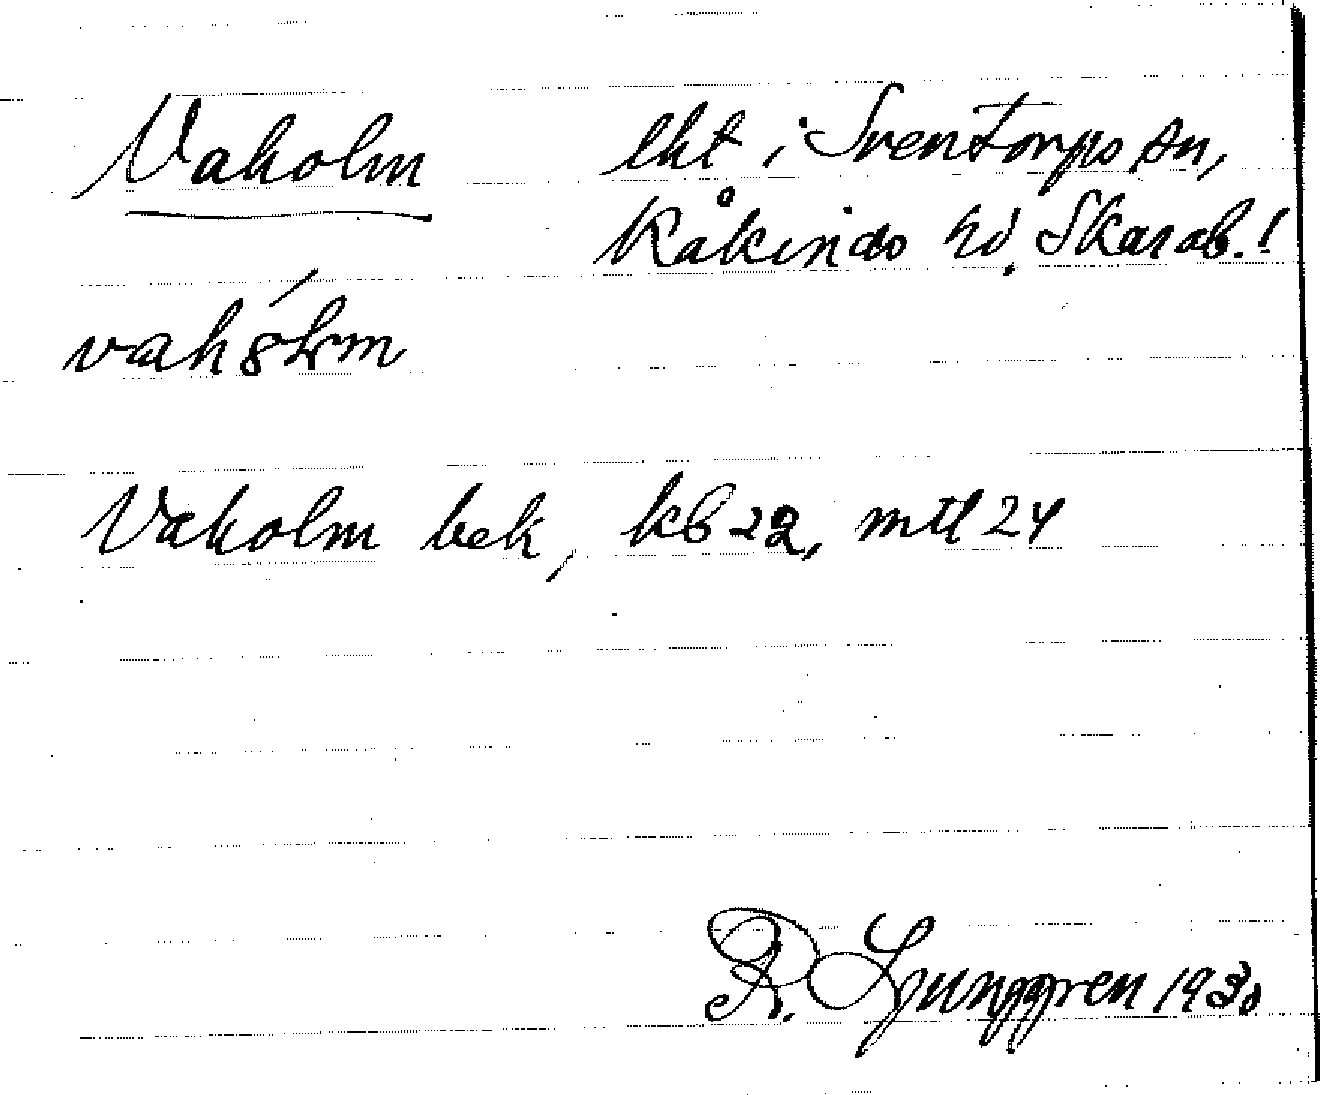 Vaholm lht i Sventorps sn,
Kåkinds hd, Skarab.!
vahólm
Vaholm bek, kb 22, mtl 24
R. Ljunggren 1930